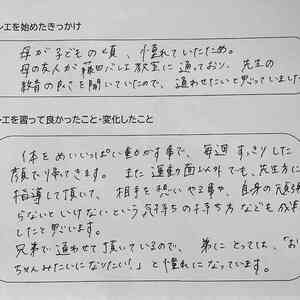 レエを始めたきっかけ
母が子どもの頃、憧れていたため。
母の友人が藤田バレエ教室に通っており、先生の
教育の良さを聞いていたので、通わせたいと思っていました
エを習って良かったこと・変化したこと
体をめいいっぱい動かす事で、毎週すっきりした
顔で帰ってきます。また運動面以外でも、先生方に
指導して頂いて、相手を想いやる事や、自身の頑張
らないといけないという気持ちの持ち方なども成
したと思います。
兄弟で通わせて頂いているので、弟にとっては、「お
ちゃんみたいになりたい!」と憧れになっています。